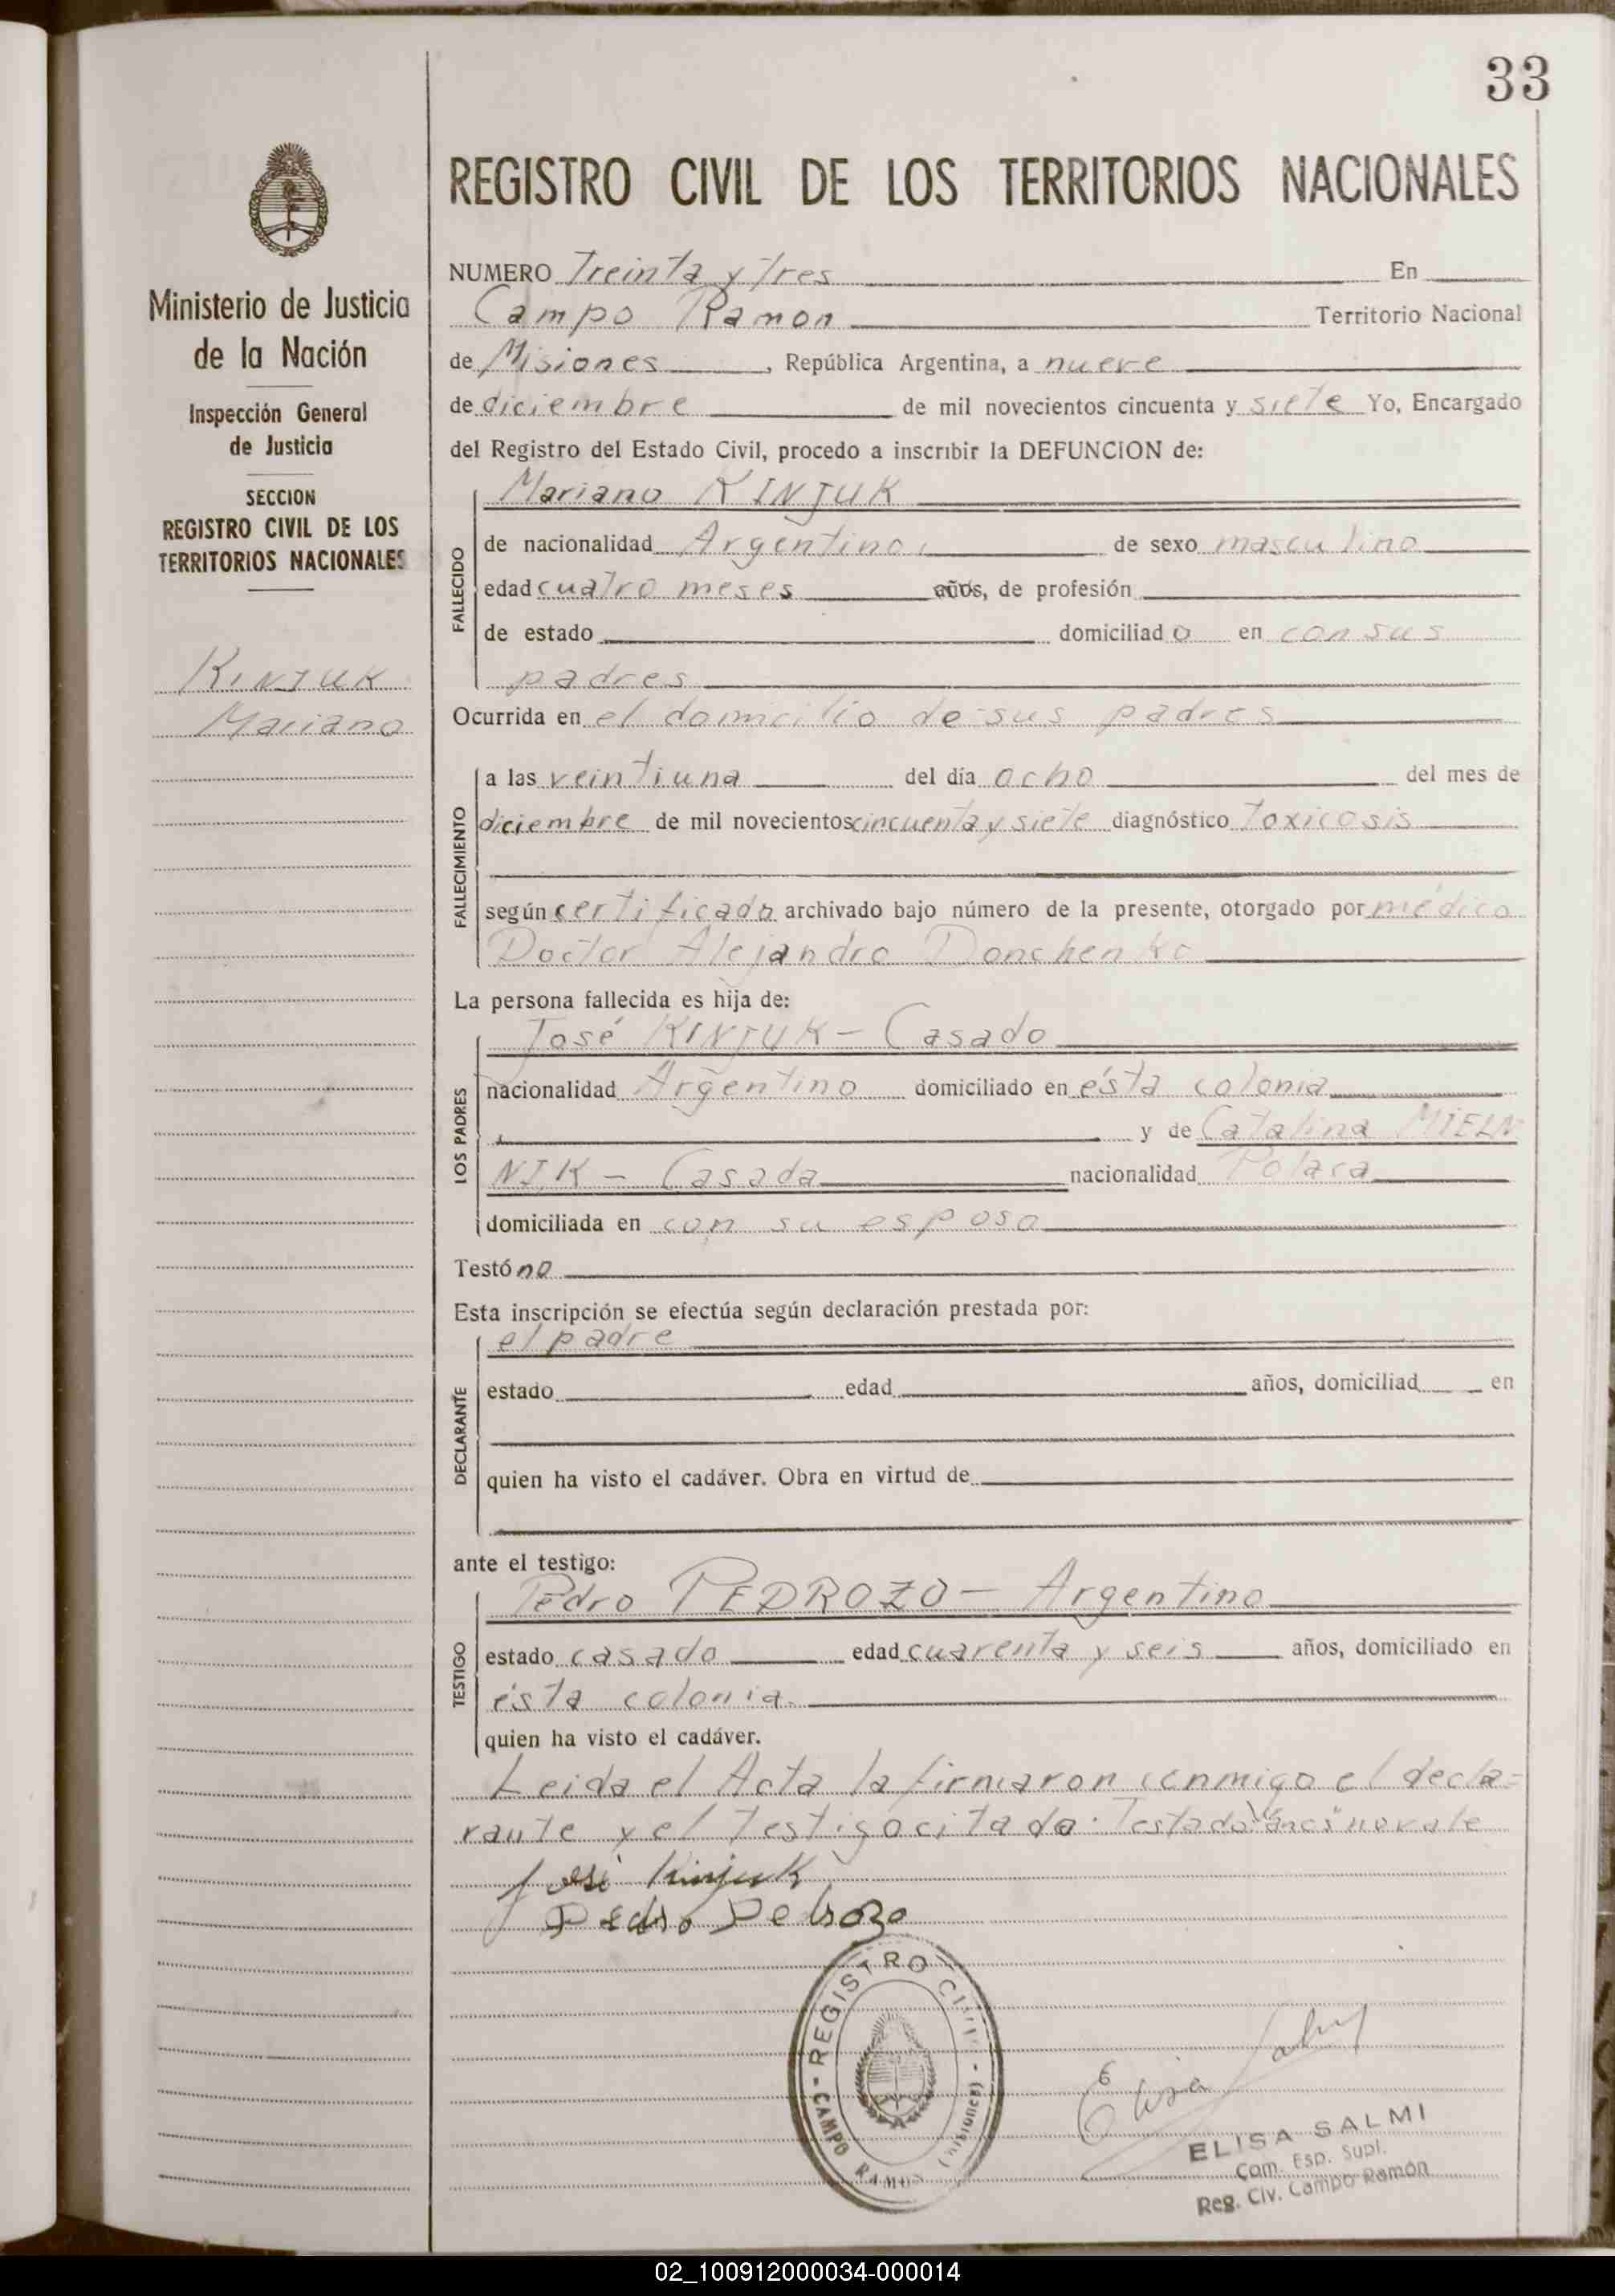 33
Ministerio de Justicia
de la Nación
Inspección General
de Justicia
SECCION
REGISTRO CIVIL DE LOS
TERRITORIOS NACIONALES
KINJUK
Mariano
REGISTRO CIVIL DE LOS TERRITORIOS NACIONALES
NUMERO Treinta y Tres En
Campo Ramon Territorio Nacional
de Misiones, República Argentina, a nueve
de diciembre de mil novecientos cincuenta y siete Yo, Encargado
del Registro del Estado Civil, procedo a inscribir la DEFUNCION de:
FALLECIDO
Mariano KINJUK
de nacionalidad Argentino, de sexo masculino
edad cuatro meses años, de profesión
de estado domiciliad o en con sus
padres
Ocurrida en el domicilio de sus padres
FALLECIMIENTO
a las veintiuna del día ocho del mes de
diciembre de mil novecientos cincuenta y siete diagnóstico Toxicosis
según certificado archivado bajo número de la presente, otorgado por médico
Doctor Alejandro Donchenko
La persona fallecida es hija de:
LOS PADRES
José KINJUK - Casado
nacionalidad Argentino domiciliado en ésta colonia
y de Catalina MIELN
NIK - Casada nacionalidad Polaca
domiciliada en con su esposo
Testó no
Esta inscripción se efectúa según declaración prestada por:
DECLARANTE
el padre
estado edad años, domiciliad en
quien ha visto el cadáver. Obra en virtud de
ante el testigo:
TESTIGO
Pedro PEDROZO - Argentino
estado casado edad cuarenta y seis años, domiciliado en
ésta colonia
quien ha visto el cadáver.
Leida el Acta la firmaron conmigo el decla=
rante y el testigo citado. Testado "años" no vale
José Kinjuk
Pedro Pedrozo
REGISTRO CIVIL - CAMPO RAMON (Misiones) -
Elisa Salmi
ELISA SALMI
Com. Esp. Supl.
Reg. Civ. Campo Ramón
02_100912000034-000014